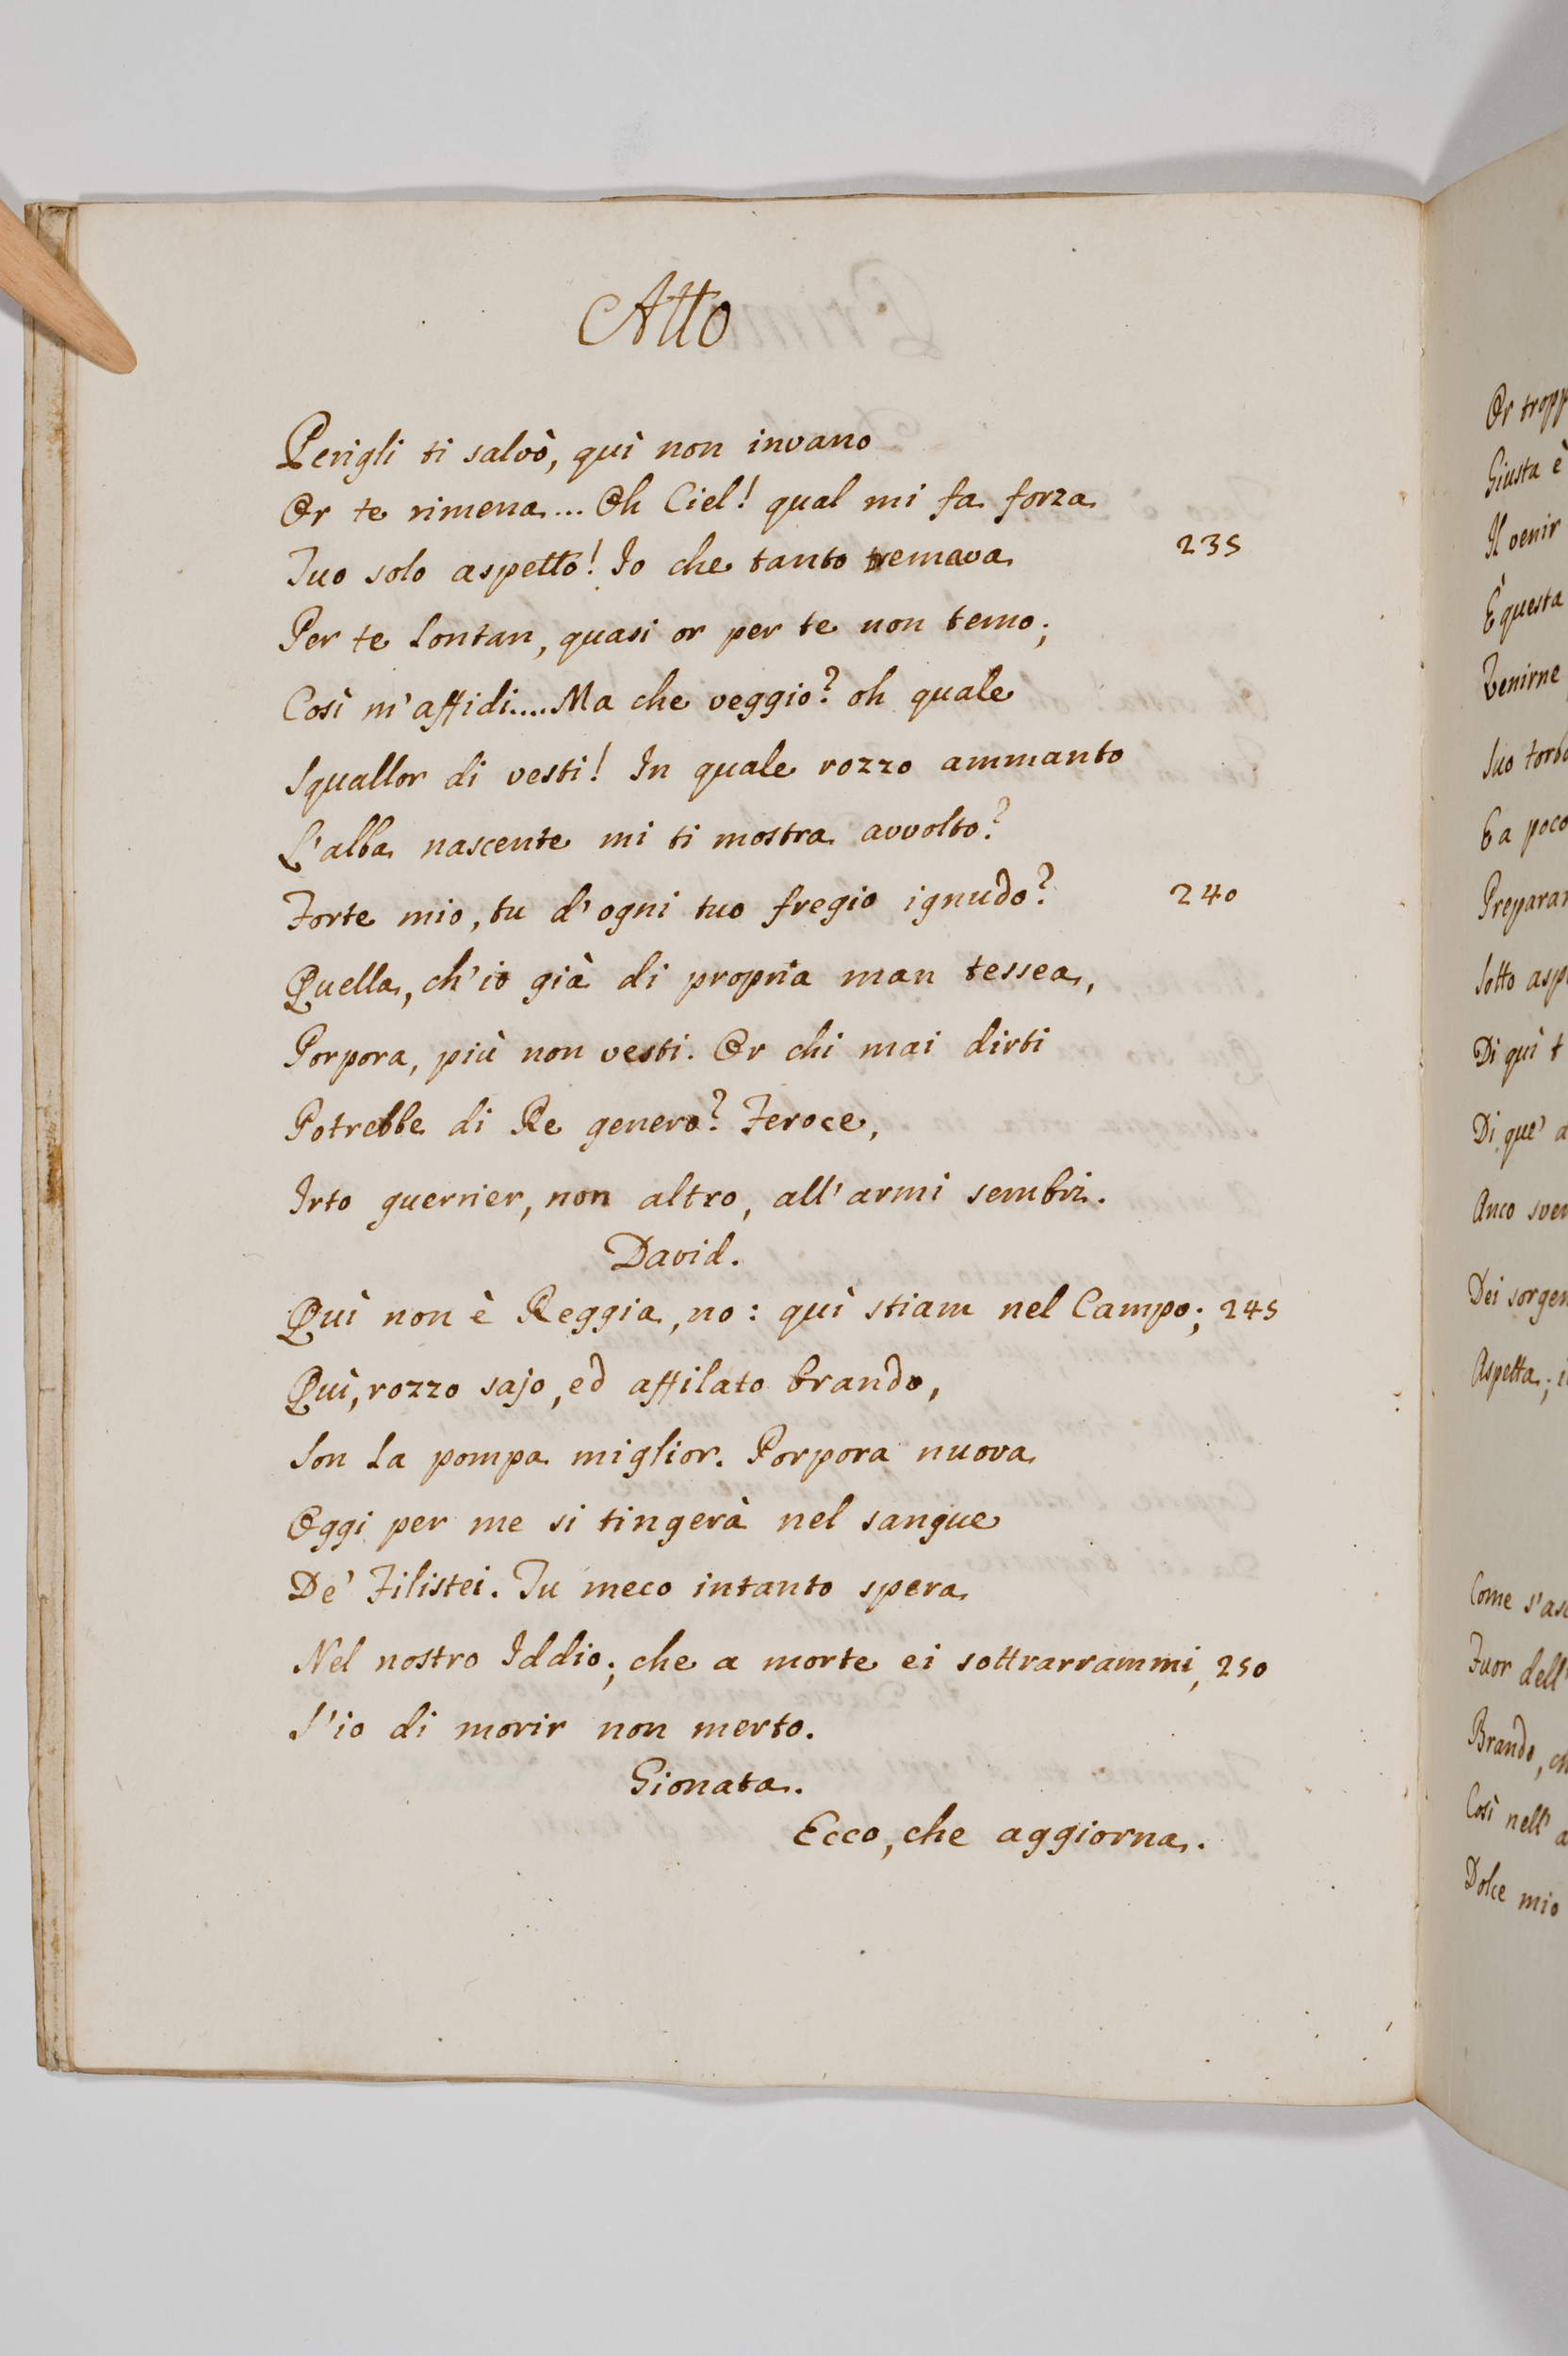 Atto
Perigli ti salvò, quì non invano
Or te rimena... Oh Ciel! qual mi fa forza
Tuo solo aspetto! Io che tanto tremava 235
Per te lontan, quasi or per te non temo;
Così m'affidi.... Ma che veggio? oh quale
Squallor di vesti! In quale rozzo ammanto
L'alba nascente mi ti mostra avvolto?
Forte mio, tu d'ogni tuo fregio ignudo? 240
Quella, ch'io già di propria man tessea,
Porpora, più non vesti. Or chi mai dirti
Potrebbe di Re genero? Feroce,
Irto guerrier, non altro, all'armi sembri.
David.
Quì non è Reggia, no: quì stiam nel Campo; 245
Quì, rozzo sajo, ed affilato brando,
Son la pompa miglior. Porpora nuova
Oggi per me si tingerà nel sangue
De' Filistei. Tu meco intanto spera
Nel nostro Iddio; che a morte ei sottrarrammi, 250
S'io di morir non merto.
Gionata.
Ecco, che aggiorna.
Or
Giusta è
Il venir
È questa
Venirne
Suo
E a poco
Sotto
Di quì
Di que'
Anco
Dei
Aspetta;
Come
Fuor dell'
Brando,
Così nell'
Dolce mio